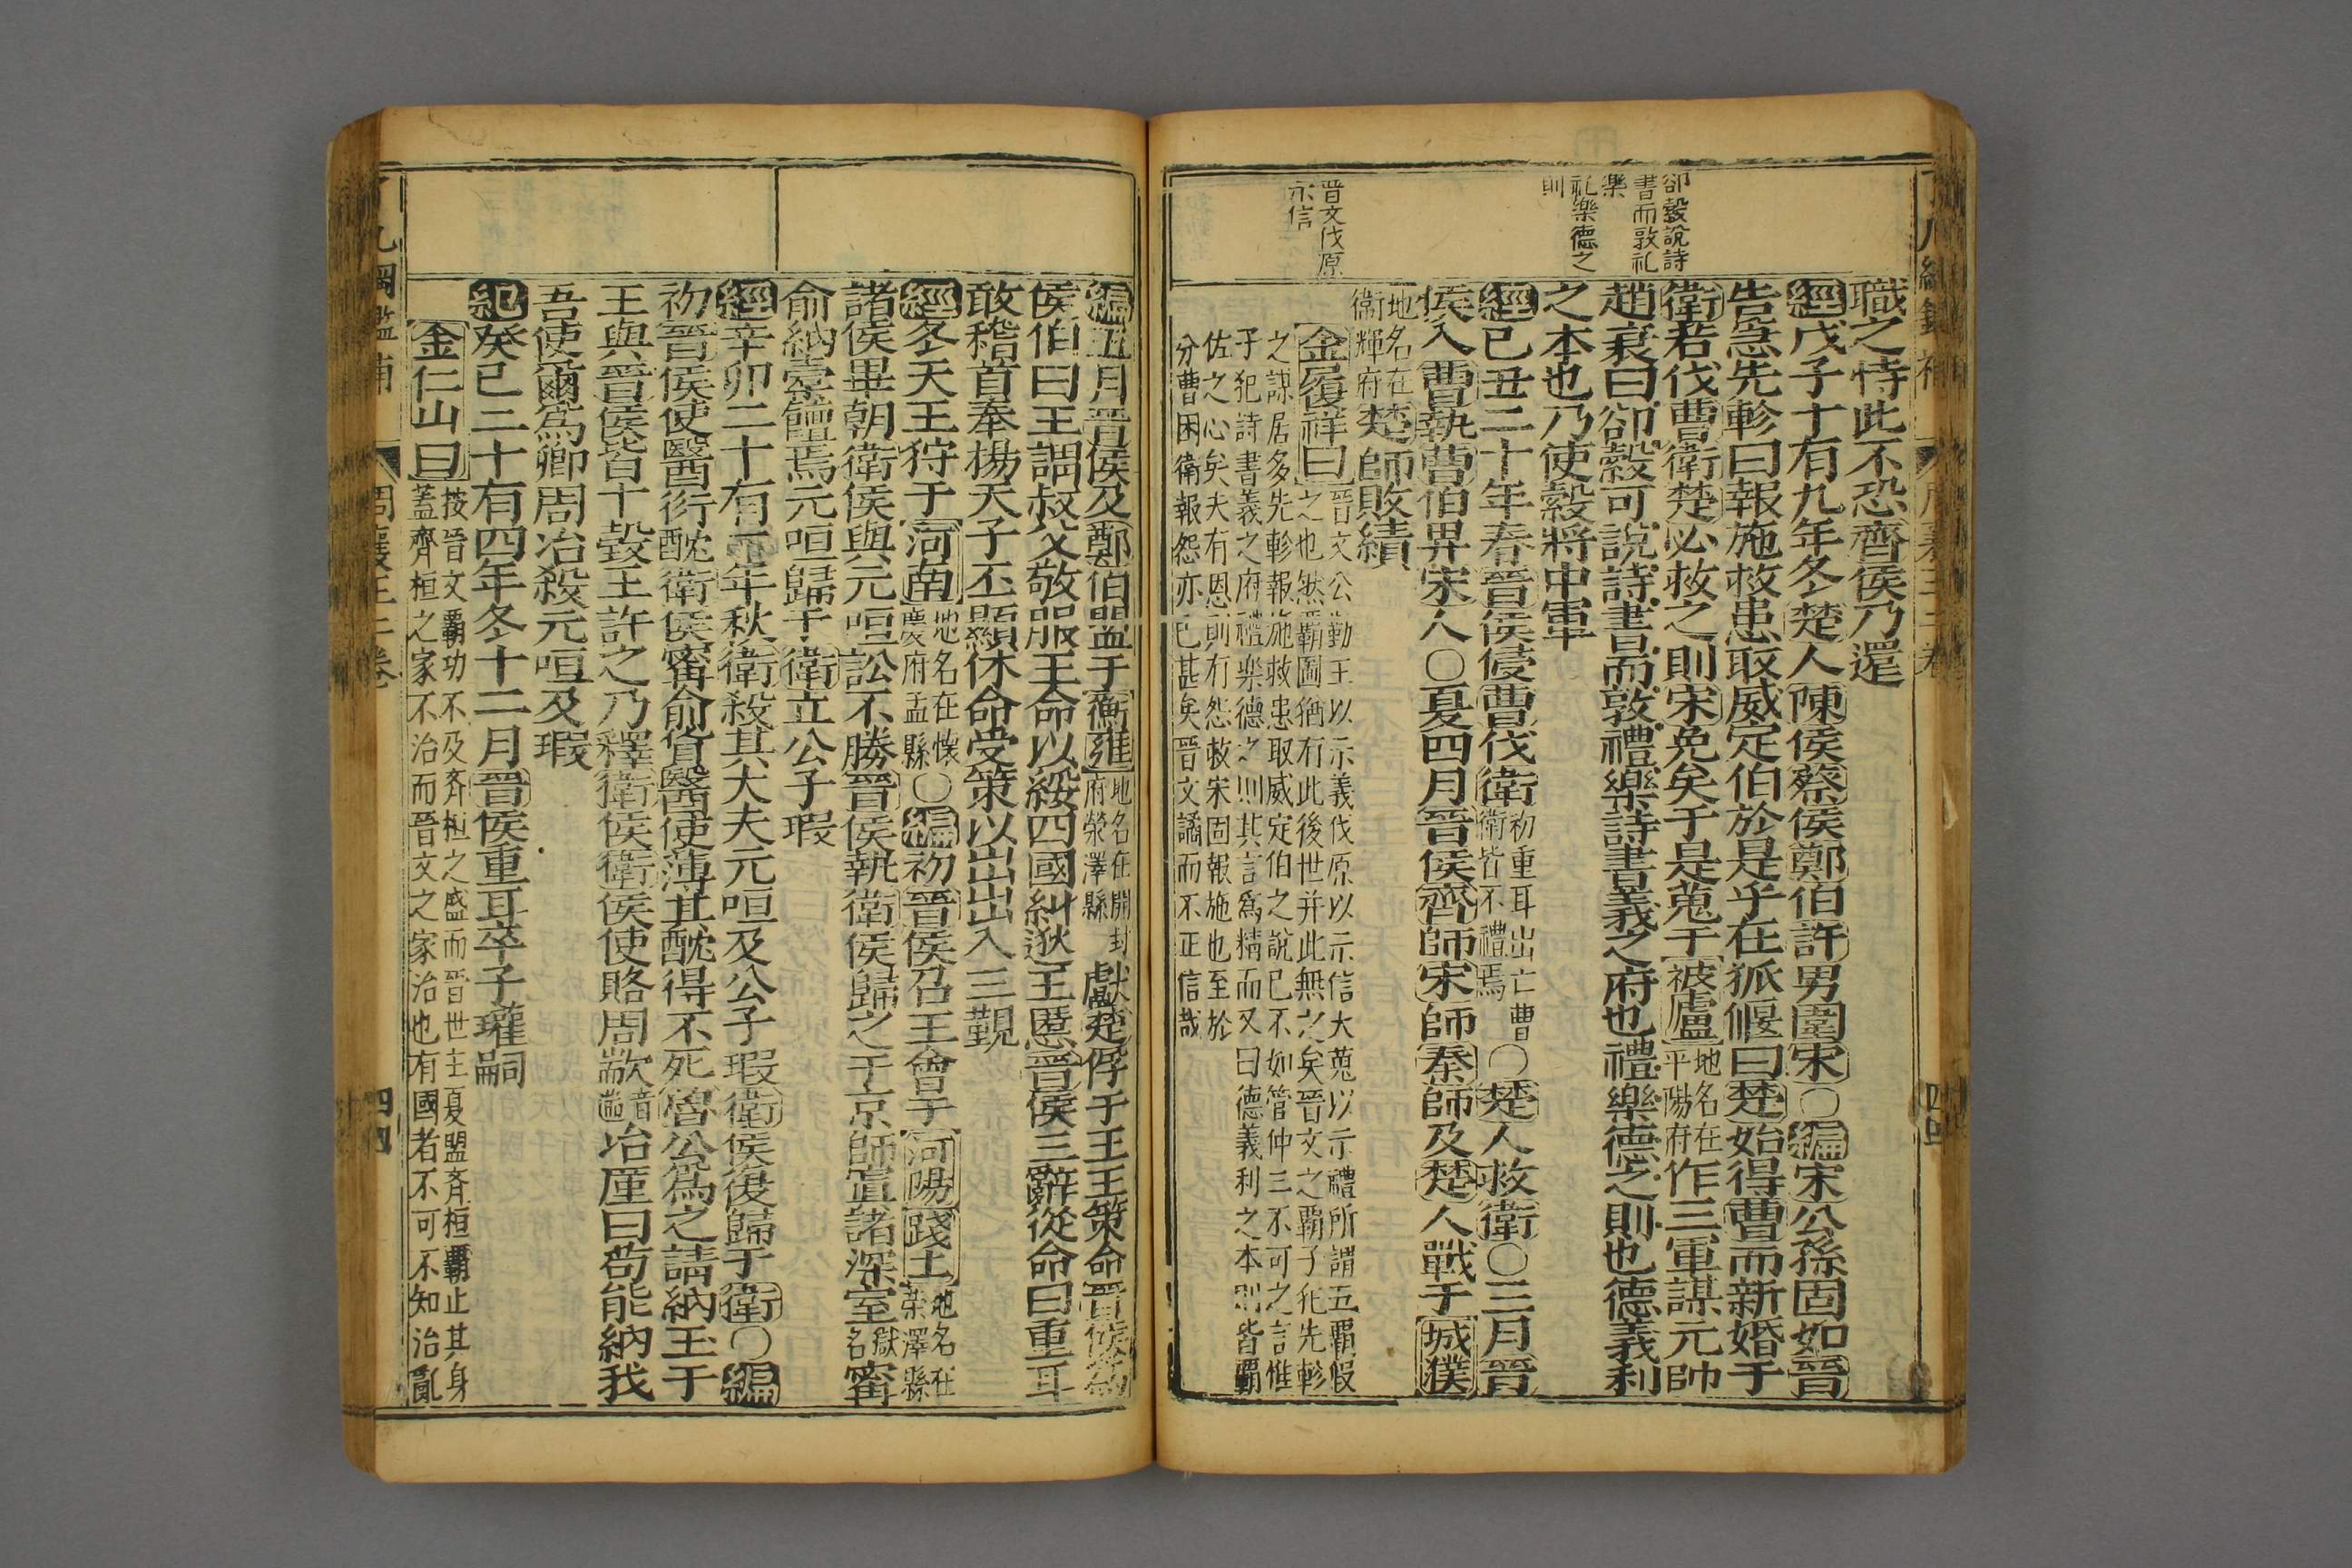 郤縠說詩
書而敦礼
樂
礼樂德之
則
晋文伐原
示信
職之恃此不恐齊侯乃還
經戊子十有九年冬楚人陳侯蔡侯鄭伯許男圍宋○編宋公孫固如晉
告急先軫曰報施救患取威定伯於是乎在狐偃曰楚始得曹而新婚于
衛若伐曹衛楚必救之則宋免矣于是蒐于被廬地名在平陽府作三軍謀元帥
趙衰曰郤縠可說詩書而敦禮樂詩書義之府也禮樂德之則也德義利
之本也乃使縠將中軍
經己丑二十年春晉侯侵曹伐衛初重耳出亡曹衛皆不禮焉○楚人救衛○三月晉
侯入曹執曹伯畀宋人○夏四月晉侯齊師宋師秦師及楚人戰于城濮
地名在衞輝府楚師敗績
金履祥曰晉文公勤王以示義伐原以示信大蒐以示禮所謂五覇假
之也然覇圖猶有此後世并此無之矣晉文之覇子犯先軫
之謀居多先軫報施救患取威定伯之說已不如管仲三不可之言惟
子犯詩書義之府禮樂德之則其言爲精而又曰德義利之本則皆覇
佐之心矣夫有恩則有怨救宋固報施也至於
分曹困衛報怨亦已甚矣晉文譎而不正信哉
編五月晉侯及鄭伯盟于衡雍地名在開封府滎澤縣獻楚俘于王王策命晉侯爲
侯伯曰王謂叔父敬服王命以綏四國糾逖王慝晉侯三辭從命曰重耳
敢稽首奉揚天子丕顯休命受策以出出入三覲
經冬天王狩于河南地名在懷慶府孟縣○編初晉侯召王會于河陽踐土地名在滎澤縣
諸侯畢朝衛侯與元咺訟不勝晉侯執衛侯歸之于京師寘諸深室獄名甯
俞納橐饘焉元咺歸于衛立公子瑕
經辛卯二十有二年秋衛殺其大夫元咺及公子瑕衛侯復歸于衛○編
初晉侯使醫衍酖衛侯甯俞貨醫使薄其酖得不死魯公爲之請納玉于
王與晉侯皆十瑴王許之乃釋衛侯衛侯使賂周歂音遄冶厪曰苟能納我
吾使爾爲卿周冶殺元咺及瑕
紀癸巳二十有四年冬十二月晉侯重耳卒子瓘嗣
金仁山曰按晉文覇功不及齊桓之盛而晉世主夏盟齊桓覇止其身
蓋齊桓之家不治而晉文之家治也有國者不可不知治亂
周襄王二卷
四四